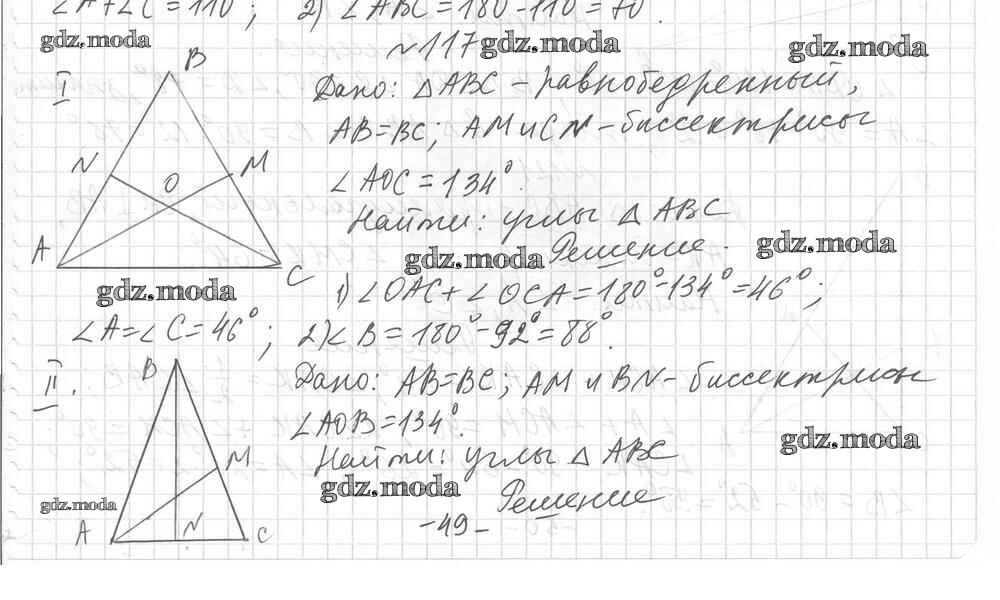 ∠A+∠C=110°; 2) ∠ABC=180°-110°=70°.
gdz.moda
№117 gdz.moda gdz.moda
I
B
N M
O
A C
Дано: △ABC – равнобедренный,
AB=BC; AM и CN – биссектрисы
∠AOC=134°.
Найти: углы △ABC
gdz.moda Решение. gdz.moda
gdz.moda
1) ∠OAC+∠OCA=180°-134°=46°;
∠A=∠C=46°; 2) ∠B=180°-92°=88°.
II.
B
M
A N C
Дано: AB=BC; AM и BN – биссектрисы
∠AOB=134°.
gdz.moda
Найти: углы △ABC
gdz.moda Решение
gdz.moda
-49-